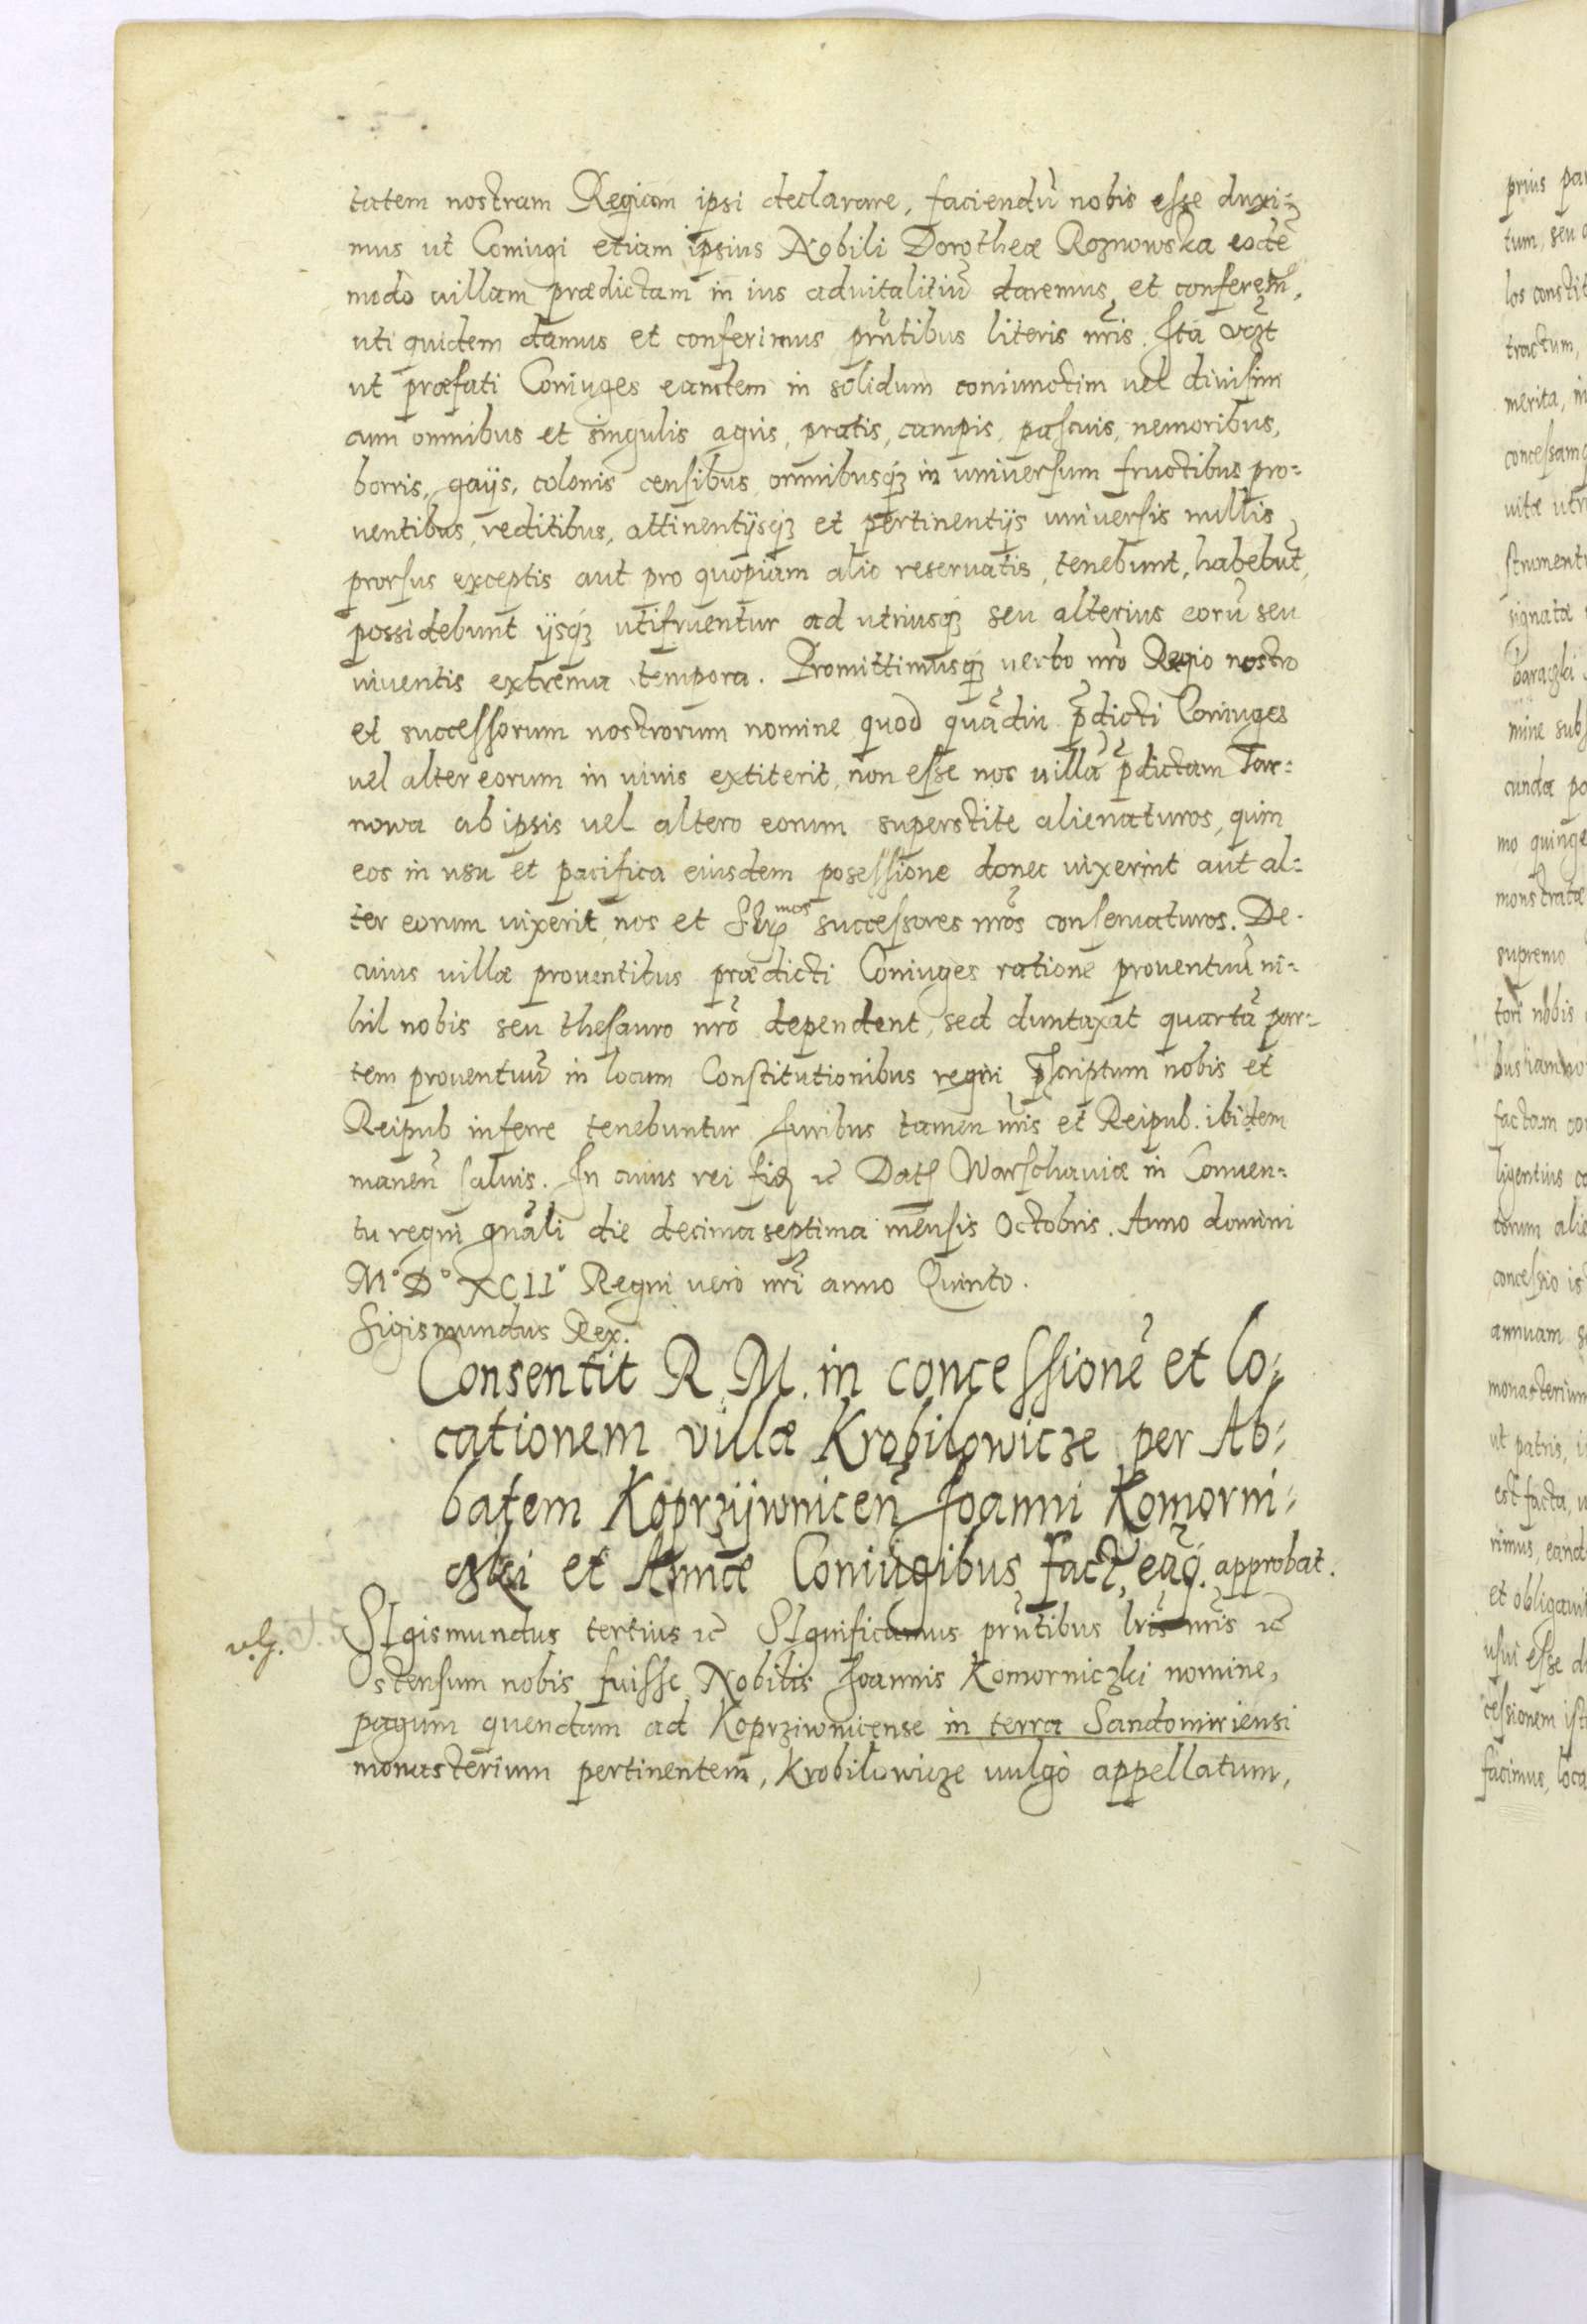 tatem nostram Regiam ipsi declarare, faciendũ nobis esse duxi=
mus ut Coniugi etiam ipsius Nobili Dorotheæ Roznowska eodẽ
modo villam prædictam in ius aduitalitiũ daremus et conferem̃,
uti quidem damus et conferimus pñtibus literis nr̃is. Ita
ut præfati Coniuges eandem in solidum coniunctim vel diuisim
cum omnibus et singulis agris, pratis, campis, pascuis, nemoribus,
borris, gaijs, colonis censibus, omnibusq̃ in universum fructibus pro=
ventibus, reditibus, attinentijsq̃ et pertinentijs universis nullis
prorsus exceptis aut pro quopiam alio reservatis, tenebunt, habebũt,
possidebunt ijsq̃ utifruentur ad utriusq̃ seu alterius eorũ seu
viventis extrema tempora. Promittimusq̃ verbo nr̃o Regio nostro
et successorum nostrorum nomine quod quãdiu p̃dicti Coniuges
vel alter eorum in vivis extiterit, non esse nos villã p̃dictam Tar=
nowa ab ipsis vel altero eorum superstite alienaturos, quin
eos in usu et pacifica eiusdem posessione donec vixerint aut al=
ter eorum vixerit, nos et successores nr̃os conseruaturos. De
cuius villæ proventibus prædicti Coniuges ratione proventuũ ni=
hil nobis seu thesauro nr̃o dependent, sed duntaxat quartã par=
tem proventuũ in locum Constitutionibus regni p̃scriptum nobis et
Reipub inferre tenebuntur Iuribus tamen nr̃is et Reipub. ibidem
manen̄ salvis. In cuius rei fid ꝛc Dat Warschaviæ in Conuen=
tu regni gnãli die decima septima mensis Octobris. Anno domini
M° D° XCII° Regni vero nr̃i anno Quinto.
Sigismundus Rex.
Consentit R. M. in concessionẽ et lo=
cationem villæ Krobilowicze per Ab=
batem Koprzijwnicen̄ Joanni Komorni=
czki et Annæ Coniugibus fact, eãq̃. approbat.
SIgismundus tertius ꝛc SIgnificamus pñtibus lr̃is nr̃is ꝛc
Ostensum nobis fuisse Nobilis Joannis Komorniczki nomine,
pagum quendam ad Koprziwnicense in terra Sandomiriensi
monasterium pertinentem, Krobilowicze vulgò appellatum,